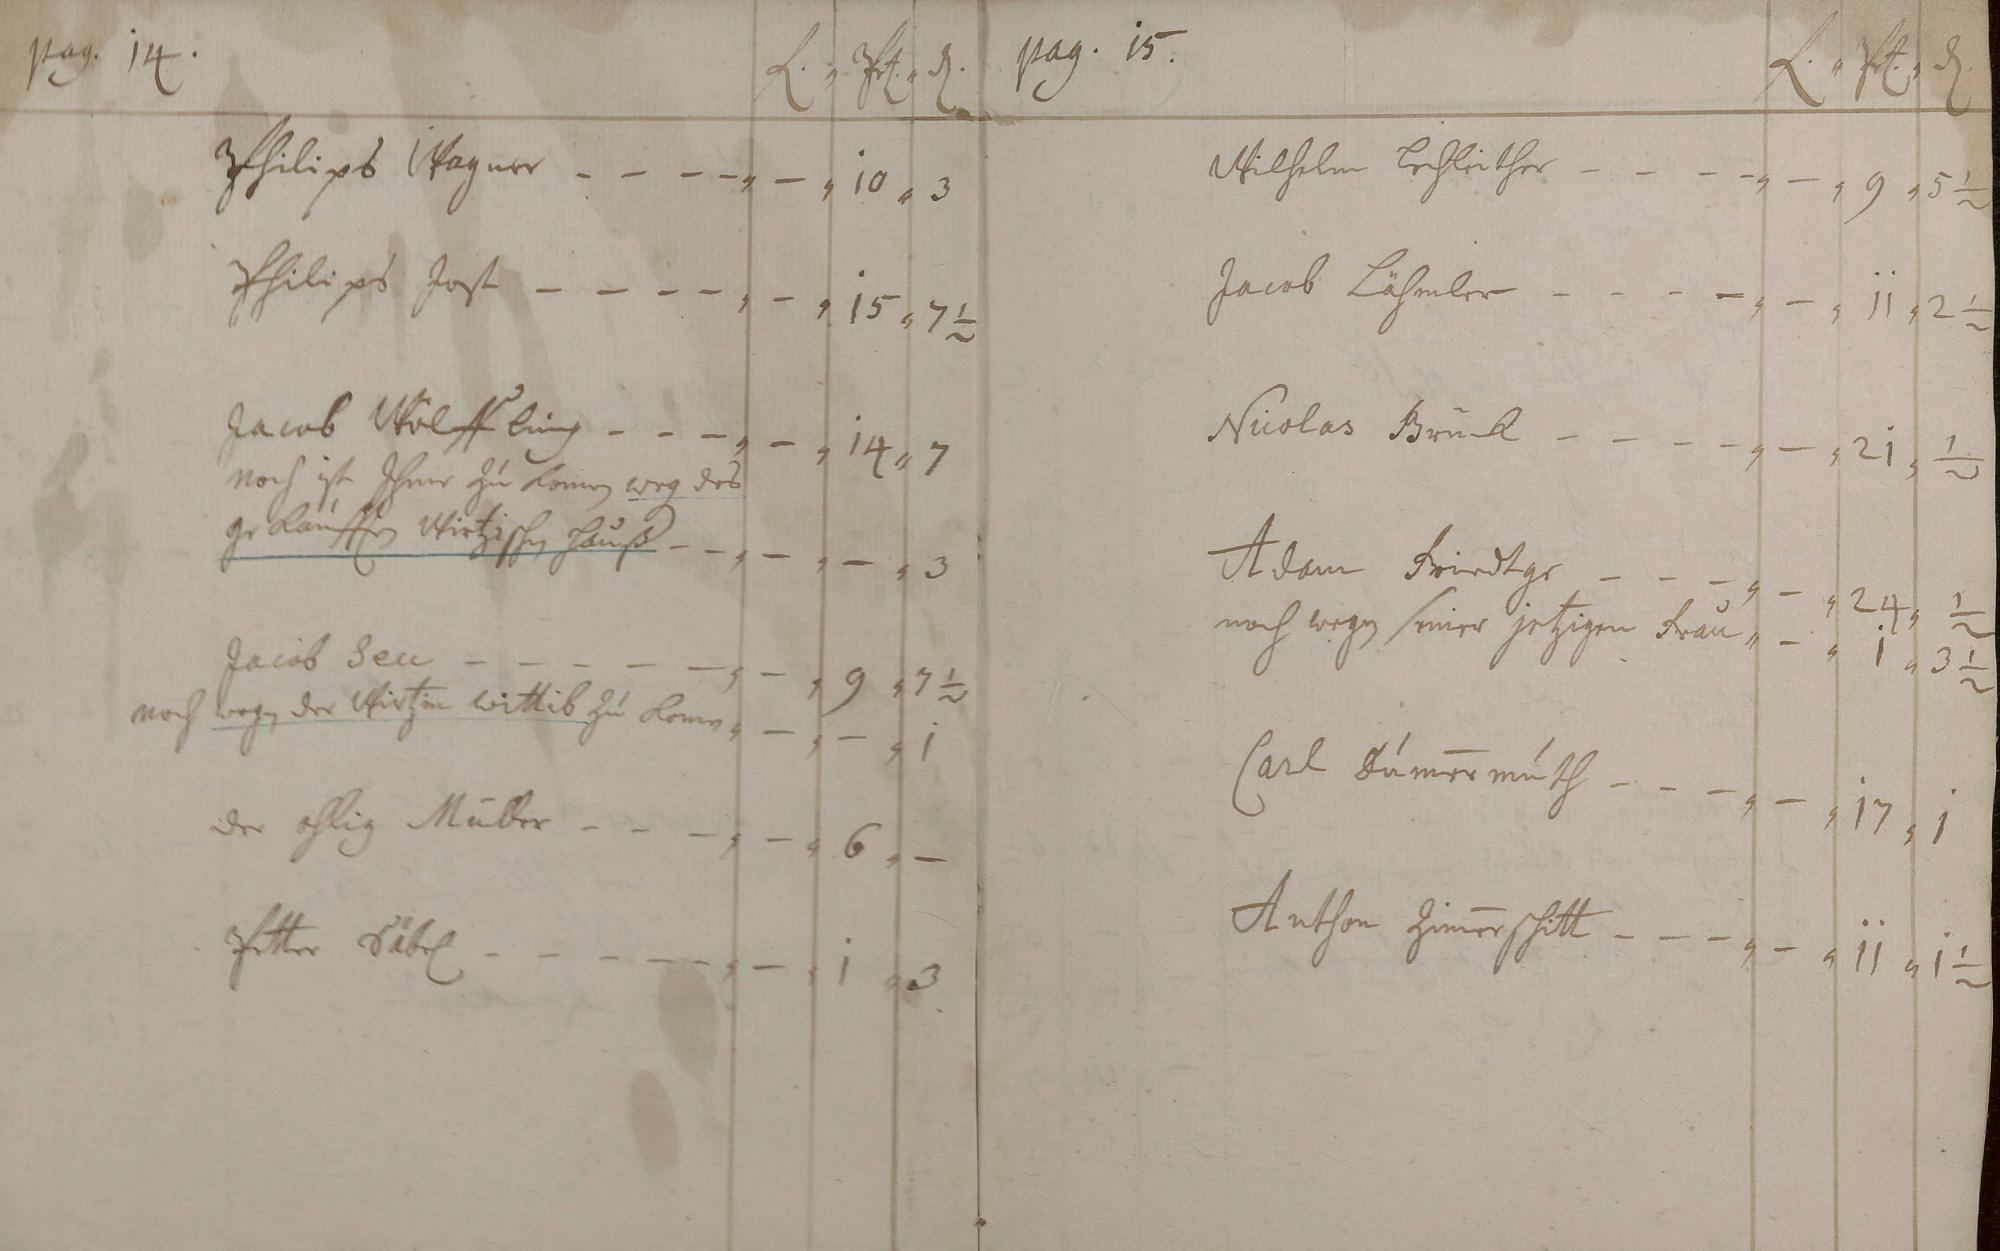 pag. 14.
Philips Wagner - - - - " - " 10 " 3
Philips Jost - - - - " - " 15 " 7 ½
Jacob Wölffling - - - " - " 14 " 7
noch ist Ihme zu komen weg des
gekaufften Wirtzischen Hauß - - " - " - " 3
Jacob Seu - - - - - - " - " 9 " 7 ½
noch wegen der Wirtzin wittib zu komen " - " - " 1
der ohlig Müller - - - " - " 6 " -
Petter Däbel - - - - - " - " 1 " 3
pag. 15.
Wilhelm Lechleither - - - - " - " 9 " 5 ½
Jacob Lähmler - - - - " - " 11 " 2 ½
Nicolas Brück - - - - " - " 21 " ½
Adam Friedtge - - - " - " 24 " ½
noch wegen seiner jetzigen Frau " - " 1 " 3 ½
Carl Dümermuth - - - " - " 17 " 1
Anthon Zimerschitt - - - " - " 11 " 1 ½